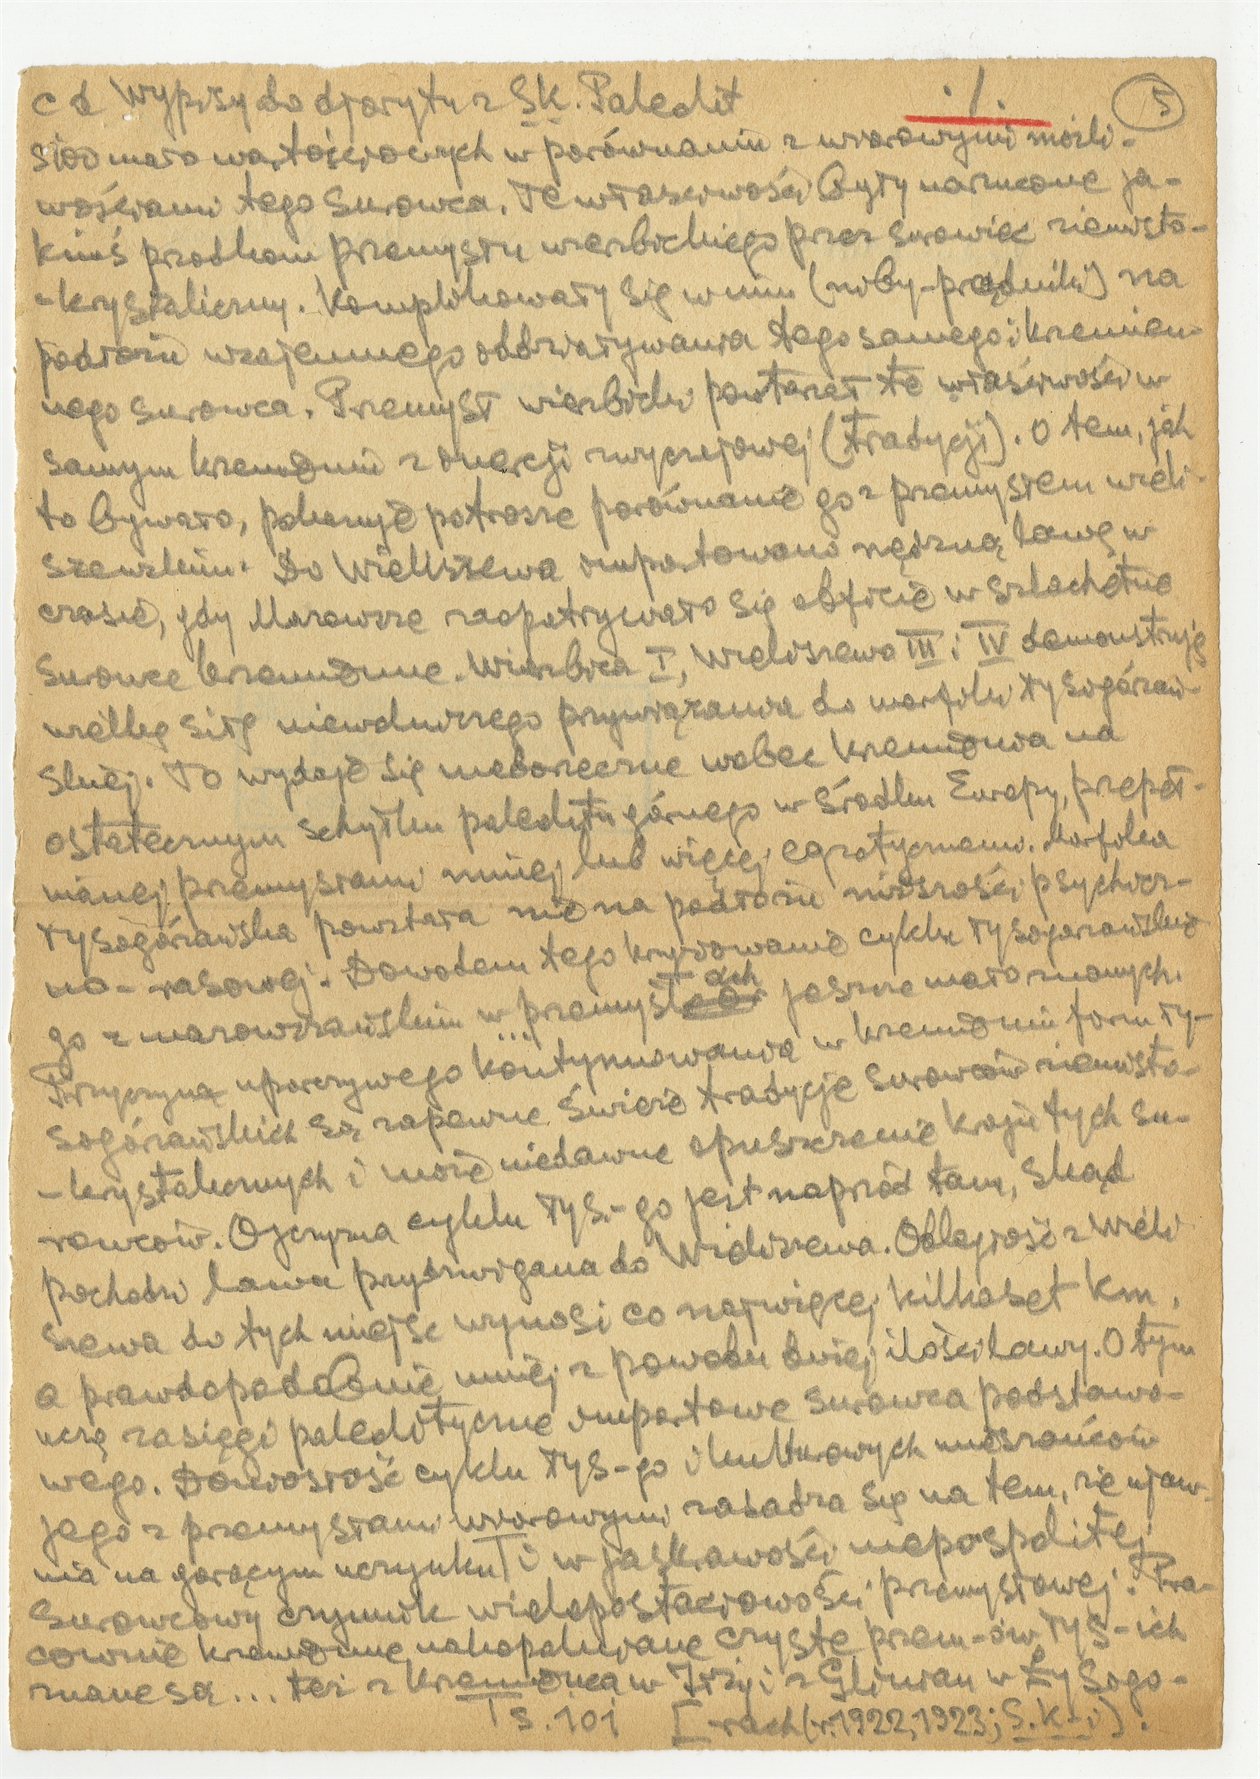 c d Wypisy do djoryty z Sk. Paleolit ./. 5
ściod mało wartościowych w porównaniu z wzorowymi możli-
wościami tego surowca. Te właściwości były narzucone ja-
kimś przodkom przemysłu wierzbickiego przez surowiec ziemisto-
-krystaliczny. Komplikowały się w nim (niby-prądniki) na
podłożu wzajemnego oddziaływania tegosamego i krzemien-
nego surowca. Przemysł wierzbicki powtarzał te właściwości w
samym krzemieniu z inercji zwyczajowej (tradycji). O tem, jak
to bywało, pokazuje potrosze porównanie go z przemysłem wieli-
szewskim. Do Wieliszewa importowano nędzną lawę w
czasie, gdy Mazowsze zaopatrywało się obficie w szlachetne
surowce krzemienne. Wierzbica I, Wieliszewo III i IV demonstruje
wielką siłę niewolniczego przywiązania do morfiki łysogórzań-
skiej. To wydaje się niedorzeczne wobec krzemieniwa na
ostatecznym schyłku paleolitu górnego w środku Europy, przepeł-
nianej przemysłami mniej lub więcej egzotycznemi. Morfika
łysogórzańska powstała nie na podłożu niższości psychicz-
no-rasowej. Dowodem tego krzyżowanie cyklu łysogórzańskie
go z mazowszańskim w przemysłach jeszcze mało znanych.
Przyczyną uporczywego kontynuowania w krzemieniu form ły-
sogórzańskich są zapewne świeże tradycje surowców ziemisto-
-krystalicznych i może niedawne opuszczenie kraju tych su-
rowców. Ojczyzna cyklu łys.-go jest naprzód tam, skąd
pochodzi lawa przydźwigana do Wieliszewa. Odległość z Wieli
szewa do tych miejsc wynosi co najwięcej kilkaset km,
a prawdopodobnie mniej z powodu dużej ilości lawy. O tym
uczą zasięgi paleolityczne importowe surowca podstawo-
wego. Doniosłość cyklu łys-go i kulturowych mieszańców
jego z przemysłami wzorowymi zasadza się na tem, że ujaw-
nia na gorącym uczynku i w jaskrawości niepospolitej
surowcowy czynnik wielopostaciowości przemysłowej. Pra-
cownie krzemienne nakopalniane czyste przem-ów łys-ich
znane są ... też z krzemieńca w Iłży i z Glinian w Łysogó-
s. 101 [rach (r. 1922, 1923; S. K-i).